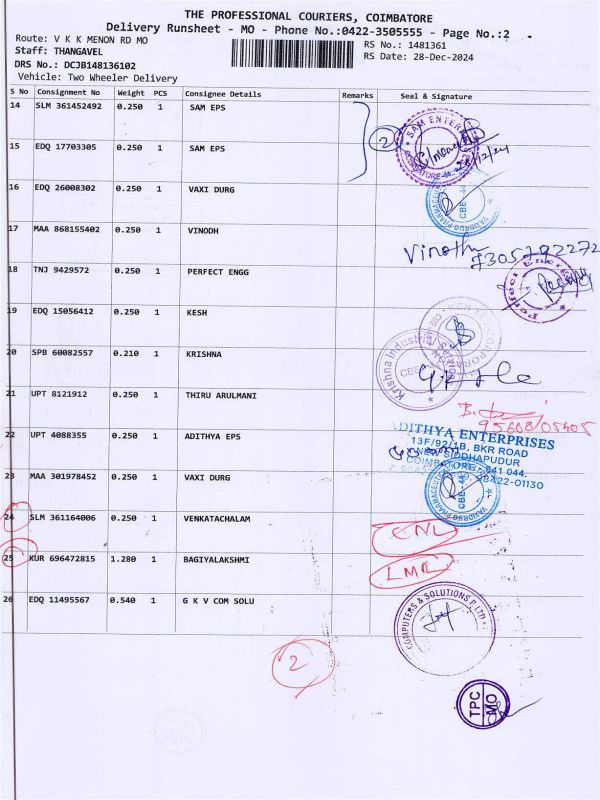 THE PROFESSIONAL COURIERS, COIMBATORE
Delivery Runsheet - MO - Phone No.:0422-3505555 - Page No.:2
Route: V K K MENON RD MO
RS No.: 1481361
Staff: THANGAVEL
RS Date: 28-Dec-2024
DRS No.: DCJB148136102
Vehicle: Two Wheeler Delivery
S No Consignment No Weight PCS Consignee Details Remarks Seal & Signature
14 SLM 361452492 0.250 1 SAM EPS
2
SAM ENTER
15 EDQ 17703305 0.250 1 SAM EPS
16 EDQ 26008302 0.250 1 VAXI DURG
CBE-44
17 MAA 868155402 0.250 1 VINODH
Vinoth 7305792272
18 TNJ 9429572 0.250 1 PERFECT ENGG
19 EDQ 15056412 0.250 1 KESH
20 SPB 60082557 0.210 1 KRISHNA
Krishna Industri
21 UPT 8121912 0.250 1 THIRU ARULMANI
22 UPT 4088355 0.250 1 ADITHYA EPS
ADITHYA ENTERPRISES
13F/92/1B, BKR ROAD
SIDDHAPUDUR
641 044.
98422-01130
23 MAA 301978452 0.250 1 VAXI DURG
24 SLM 361164006 0.250 1 VENKATACHALAM
CNL
25 KUR 696472815 1.280 1 BAGIYALAKSHMI
26 EDQ 11495567 0.540 1 G K V COM SOLU
COMPUTERS & SOLUTIONS P LTD
2
TPC
MO